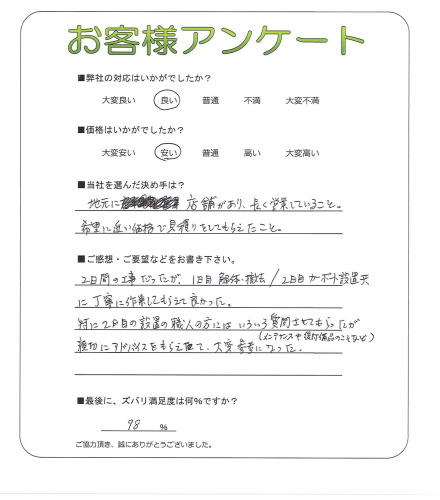 お客様アンケート
■弊社の対応はいかがでしたか？
大変良い 良い 普通 不満 大変不満
■価格はいかがでしたか？
大変安い 安い 普通 高い 大変高い
■当社を選んだ決め手は？
地元に 店舗があり、長く営業していること。
希望に近い価格で見積りをしてもらえたこと。
■ご感想・ご要望などをお書き下さい。
2日間の工事だったが、1日目 解体・撤去／2日目 カーポート設置共
に丁寧に作業してもらえて良かった。
特に2日目の設置の職人の方には いろいろ質問させてもらったが
(メンテナンスや後付備品のことなど)
親切にアドバイスをもらえて、大変参考になった。
■最後に、ズバリ満足度は何%ですか？
98 %
ご協力頂き、誠にありがとうございました。